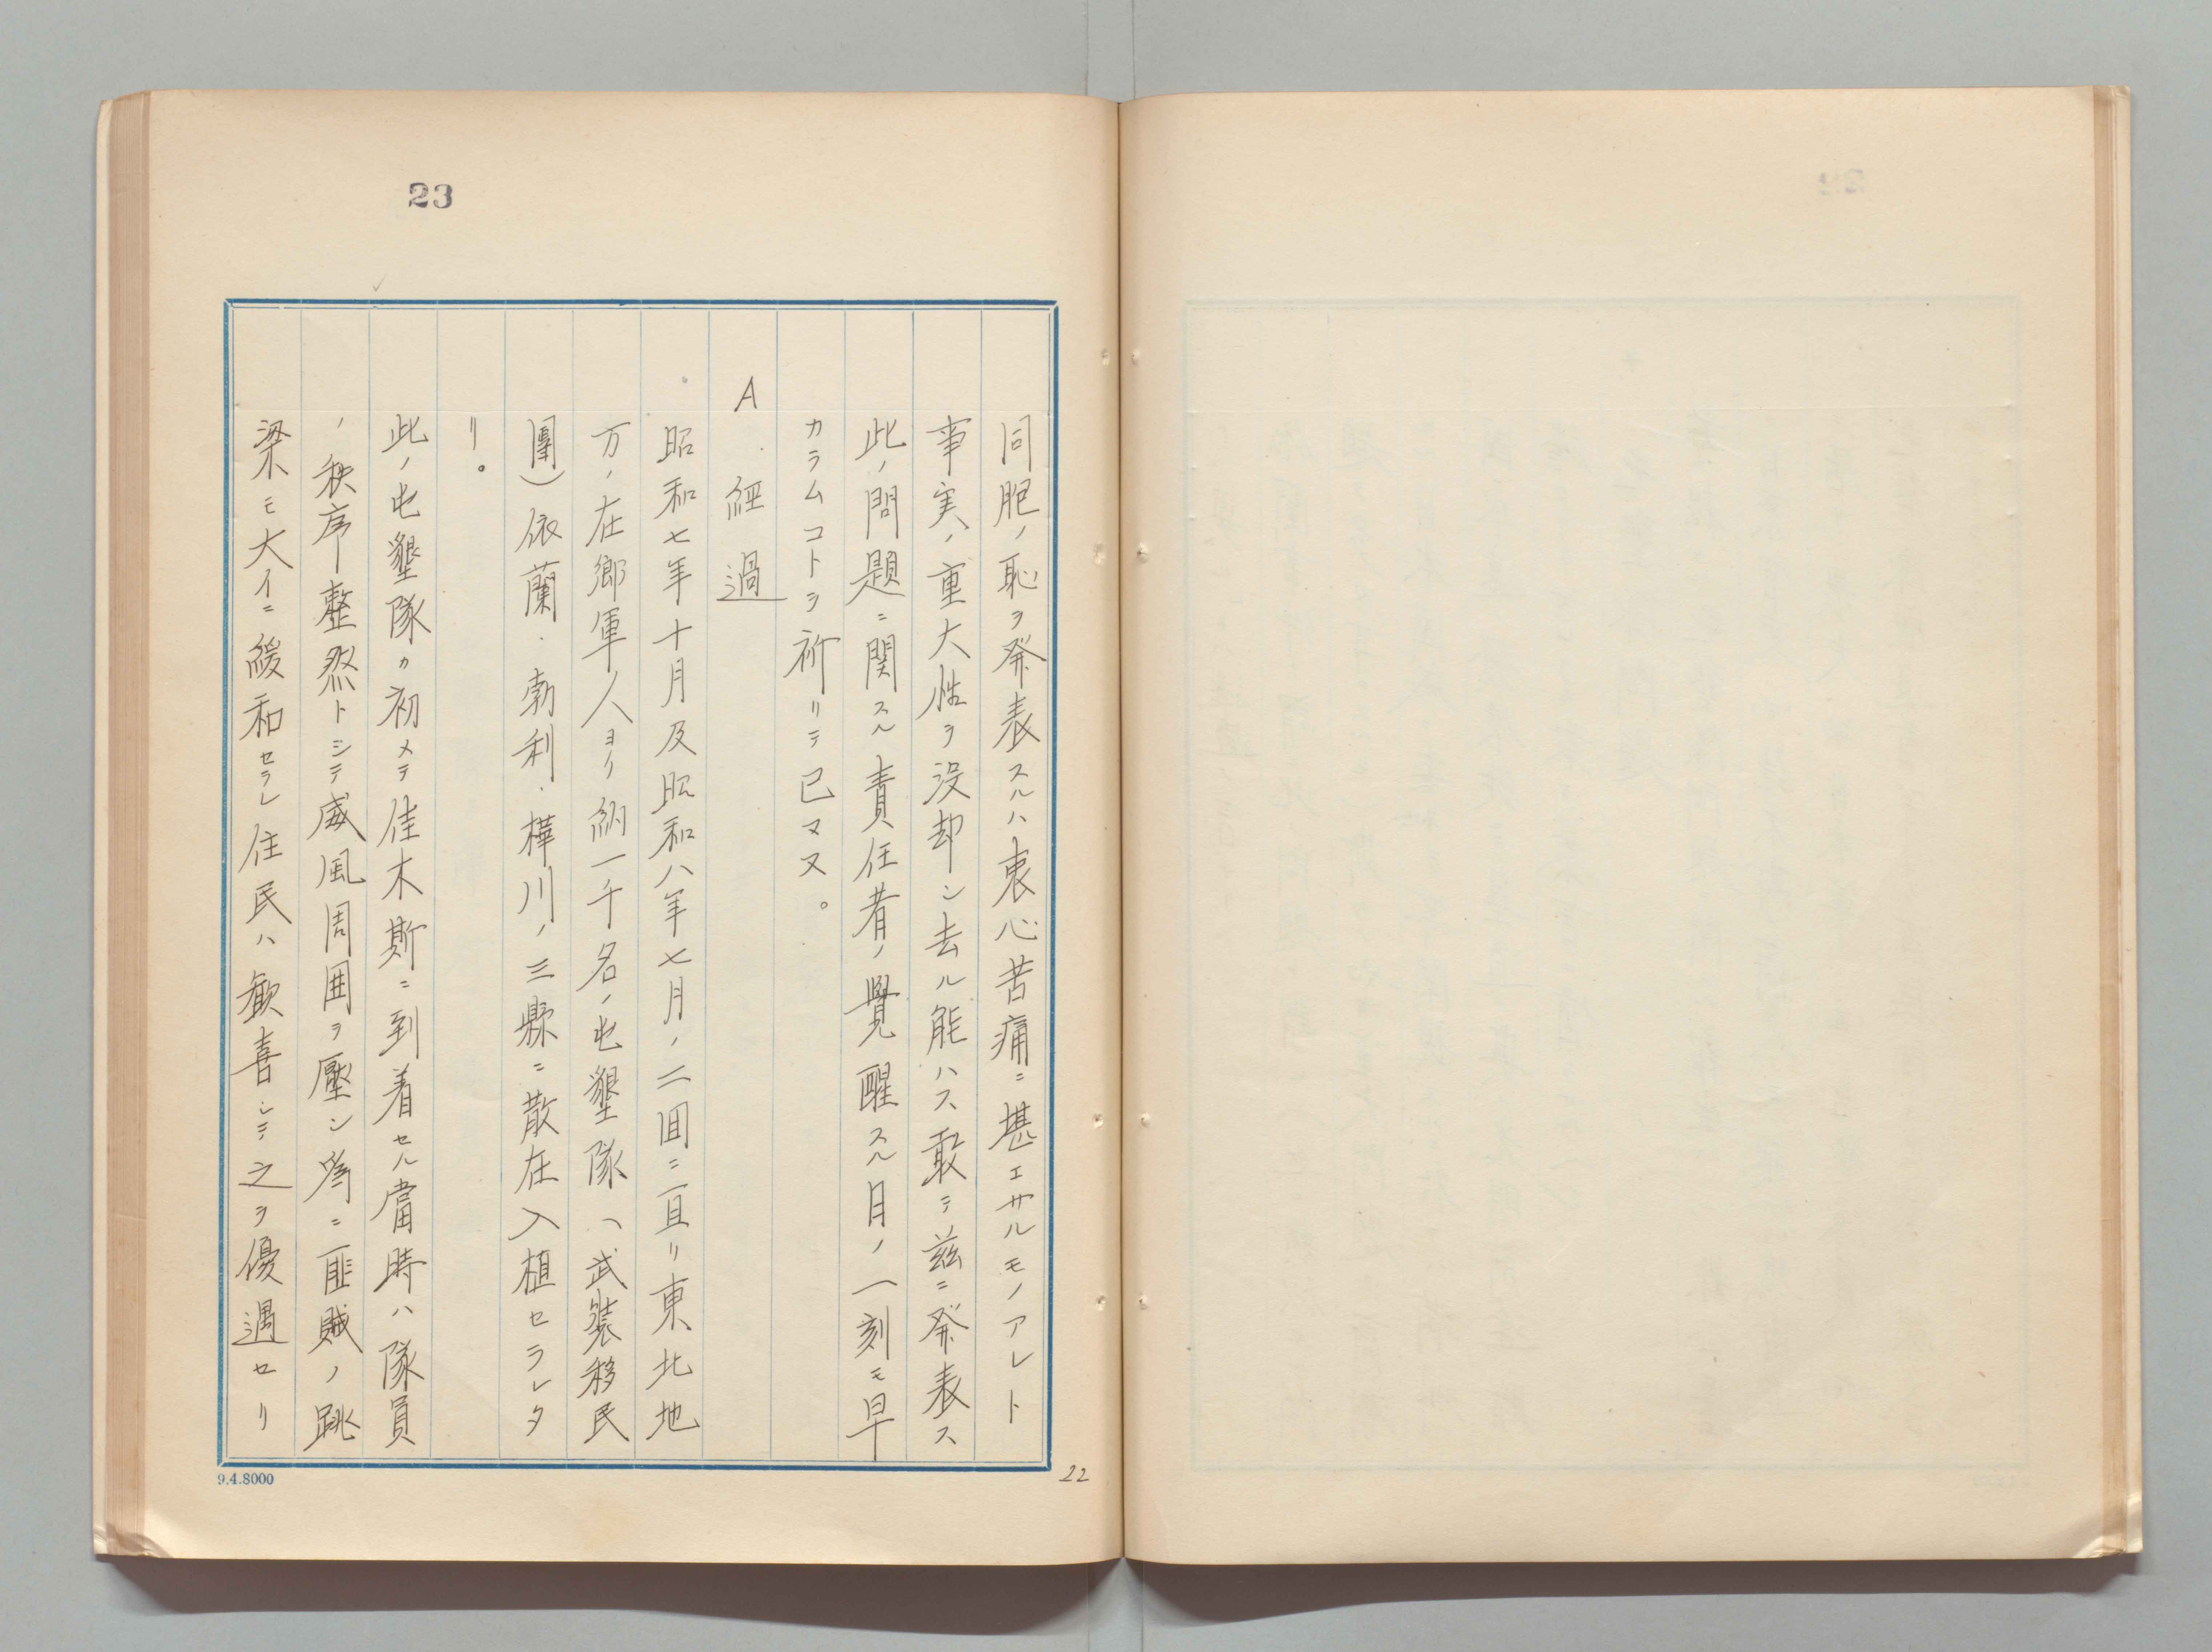 23
同胞ノ恥ヲ発表スルハ衷心苦痛ニ堪エサルモノアレト
事実ノ重大性ヲ没却シ去ル能ハス敢テ茲ニ発表ス
此ノ問題ニ関スル責任者ノ覺醒スル日ノ一刻モ早
カラムコトヲ祈リテ已マヌ。
A 経過
昭和七年十月及昭和八年七月ノ二回ニ亘リ東北地
方ノ在郷軍人ヨリ約一千名ノ屯墾隊(武装移民
團)依蘭.勃利.樺川ノ三縣ニ散在入植セラレタ
リ。
此ノ屯墾隊カ初メテ佳木斯ニ到着セル當時ハ隊員
ノ秩序整然トシテ威風周囲ヲ壓シ為ニ匪賊ノ跳
梁モ大イニ緩和セラレ住民ハ歓喜シテ之ヲ優遇セリ
22
9.4.8000